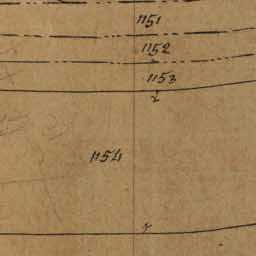 1151
1152
1153
1154